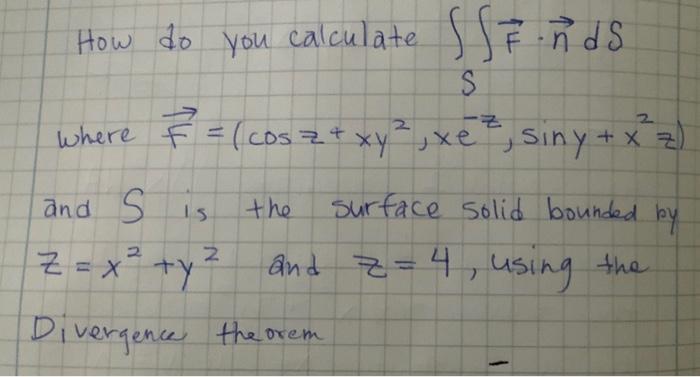 How do you calculate ∫∫ F⃗ · n⃗ dS
S
where F⃗ = (cos z + xy², xe⁻ᶻ, sin y + x² z)
and S is the surface solid bounded by
z = x² + y² and z = 4, using the
Divergence theorem